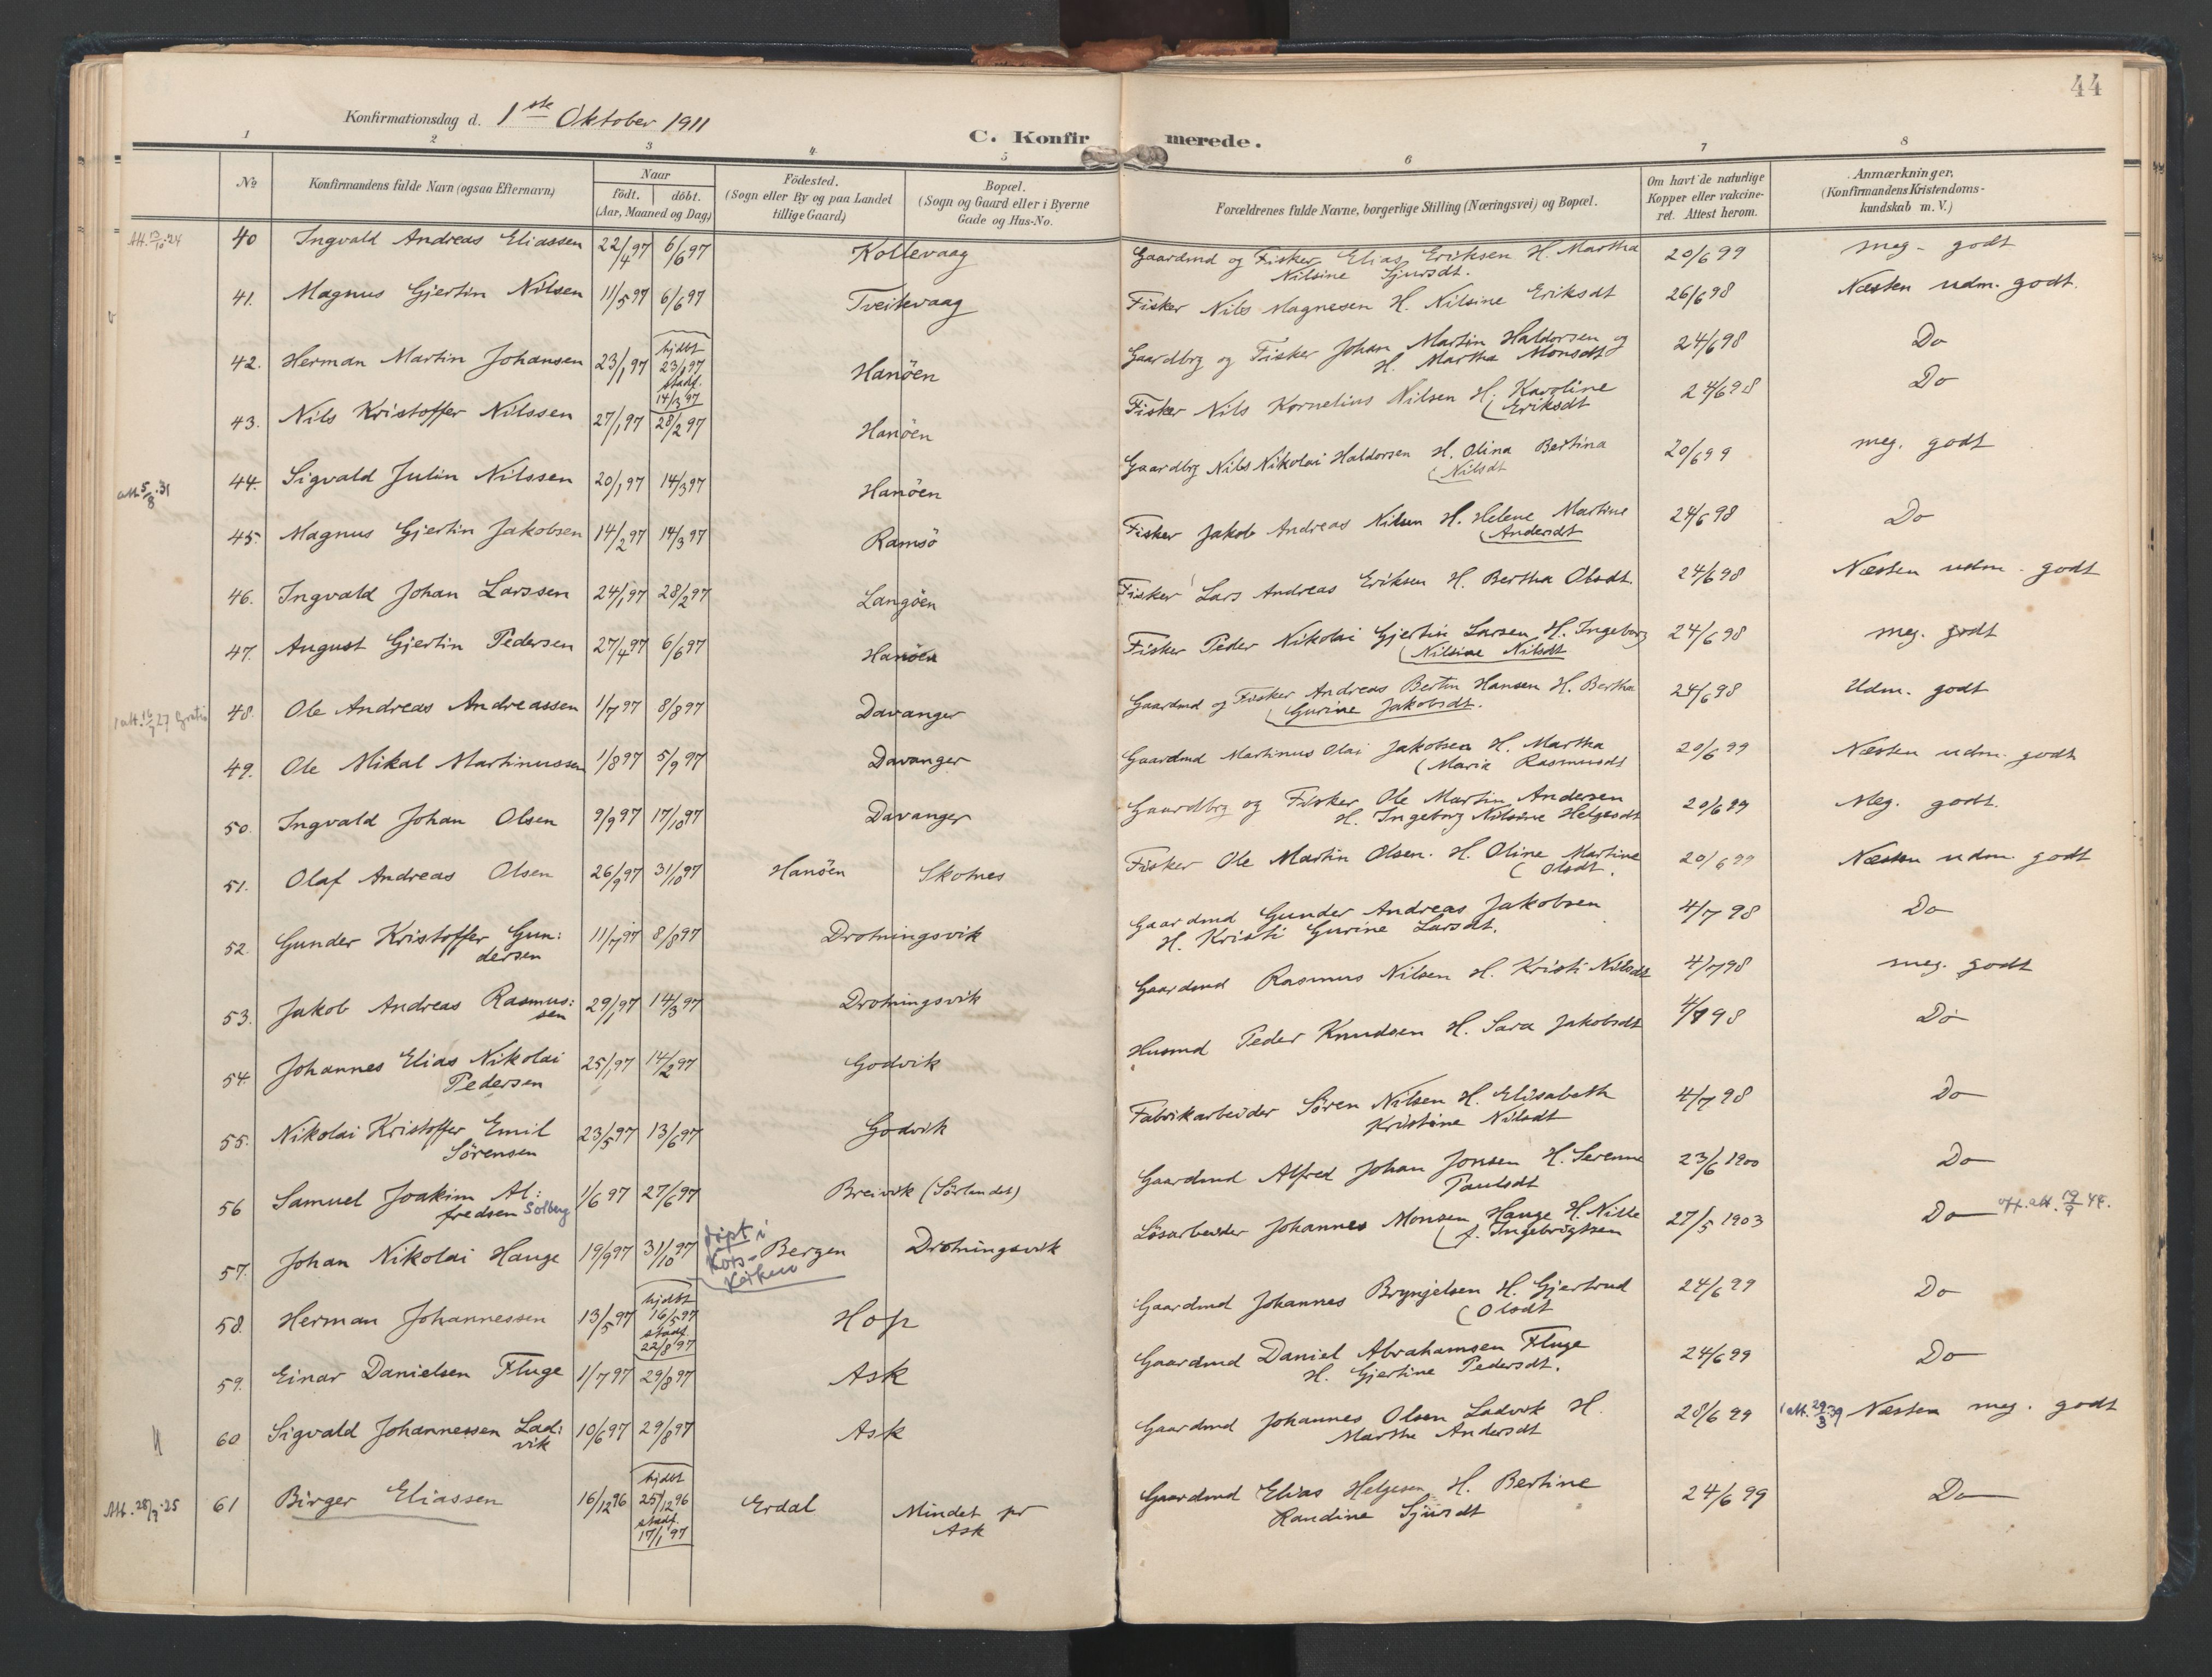 44
Konfirmationsdag d. 1ste Oktober 1911
C. Konfirmerede.
1 2 3 4 5 6 7 8
No
Konfirmandens fulde Navn (ogsaa Efternavn)
Naar
födt. döbt.
(Aar, Maaned og Dag)
Födested.
(Sogn eller By og paa Landet
tillige Gaard)
Bopæl.
(Sogn og Gaard eller i Byerne
Gade og Hus-No.
Forældrenes fulde Navne, borgerlige Stilling (Næringsvei) og Bopæl.
Om havt de naturlige
Kopper eller vakcine-
ret. Attest herom.
Anmærkninger.
(Konfirmandens Kristendoms-
kundskab m. V.)
40 Ingvald Andreas Eliassen 22/4 97 6/6 97 Kollevaag Gaardmd og Fisker Elias Eriksen H. Martha 20/6 99 meg. godt
Nilsine Sjursdt.
41. Magnus Gjertin Nilsen 11/5 97 6/6 97 Tveitevaag Fisker Nils Magnesen H. Nilsine Eriksdt 26/6 98 Næsten udm. godt.
42. Herman Martin Johansen 23/1 97 hjdbt 23/1 97 stadf. 14/3 97 Hanöen Gaardbrg og Fisker Johan Martin Haldorsen og 24/6 98 Do
H. Martha Monsdt
43. Nils Kristoffer Nilssen 27/1 97 28/2 97 Hanöen Fisker Nils Kornelius Nilsen H. Karoline 24/6 98 Do
Eriksdt
att. 5/8 31 44. Sigvald Julin Nilssen 20/1 97 14/3 97 Hanöen Gaardbrg Nils Nikolai Haldorsen H. Olina Bertina 20/6 99 meg. godt
Nilsdt
45. Magnus Gjertin Jakobsen 14/2 97 14/3 97 Ramsö Fisker Jakob Andreas Nilsen H. Helene Martine 24/6 98 Do
Andersdt
46. Ingvald Johan Larssen 24/1 97 28/2 97 Langöen Fisker Lars Andreas Eriksen H. Bertha Olsdt. 24/6 98 Næsten udm. godt
47. August Gjertin Pedersen 27/4 97 6/6 97 Hanöen Fisker Peder Nikolai Gjertin Larsen H. Ingeborg 24/6 98 meg. godt
Nilsine Nilsdt
48. Ole Andreas Andreassen 1/7 97 8/8 97 Davanger Gaardmd og Fisker Andreas Bertin Hansen H. Bertha 24/6 98 Udm. godt
Gurine Jakobsdt.
49. Ole Mikal Martinussen 1/8 97 5/9 97 Davanger Gaardmd Martinus Olai Jakobsen H. Martha 20/6 99 Næsten udm. godt
Maria Rasmusdt
50. Ingvald Johan Olsen 9/9 97 17/10 97 Davanger Gaardbrg og Fisker Ole Martin Andersen 20/6 99 Meg. godt.
H. Ingeborg Nilsine Helgesdt
51. Olaf Andreas Olsen 26/9 97 31/10 97 Hanöen Skotnes Fisker Ole Martin Olsen. H. Oline Martine 20/6 99 Næsten udm. godt
Olsdt.
52. Gunder Kristoffer Gun: 11/7 97 8/8 97 Drotningsvik Gaardmd Gunder Andreas Jakobsen 4/7 98 Do
dersen H. Kristi Gurine Larsdt.
53. Jakob Andreas Rasmus: 29/1 97 14/3 97 Drotningsvik Gaardmd Rasmus Nilsen H. Kristi Nilsdt 4/7 98 meg. godt
sen
54. Johannes Elias Nikolai 25/1 97 14/2 97 Godvik Husmd Peder Knudsen H. Sara Jakobsdt 4/7 98 Do
Pedersen
55. Nikolai Kristoffer Emil 23/5 97 13/6 97 Godvik Fabrikarbeider Sören Nilsen H. Elisabeth 4/7 98 Do
Sörensen Kristine Nilsdt
56 Samuel Joakim Al: 1/6 97 27/6 97 Breivik (Sörlandet) Gaardmd Alfred Johan Jonsen H. Serenne 23/6 1900 Do
fredsen Solberg Paulsdt
57. Johan Nikolai Hauge 19/9 97 31/10 97 döpt i Kors-Kirken Bergen Drotningsvik Lösarbeider Johannes Monsen Hauge H. Nille 27/5 1903 Do
f. Ingebrigtsen
58. Herman Johannessen 13/5 97 hjdbt 16/5 97 stadf. 22/8 97 Hop Gaardmd Johannes Brynjelsen H. Gjertrud 24/6 99 Do
Olsdt
59. Einar Danielsen Fluge 1/7 97 29/8 97 Ask Gaardmd Daniel Abrahamsen Fluge 24/6 99 Do
H. Gjertine Pedersdt.
60 Sigvald Johannessen Lad: 10/6 97 29/8 97 Ask Gaardmd Johannes Olsen Ladvik H. 28/6 99 att. 29/3 39 Næsten meg. godt
vik Marthe Andersdt
Att. 28/9 25 61 Birger Eliassen 16/12 96 hjdbt 25/12 96 stadf. 17/1 97 Erdal Mindet pr Gaardmd Elias Helgesen H. Bertine 24/6 99 Do
Ask Randine Sjursdt